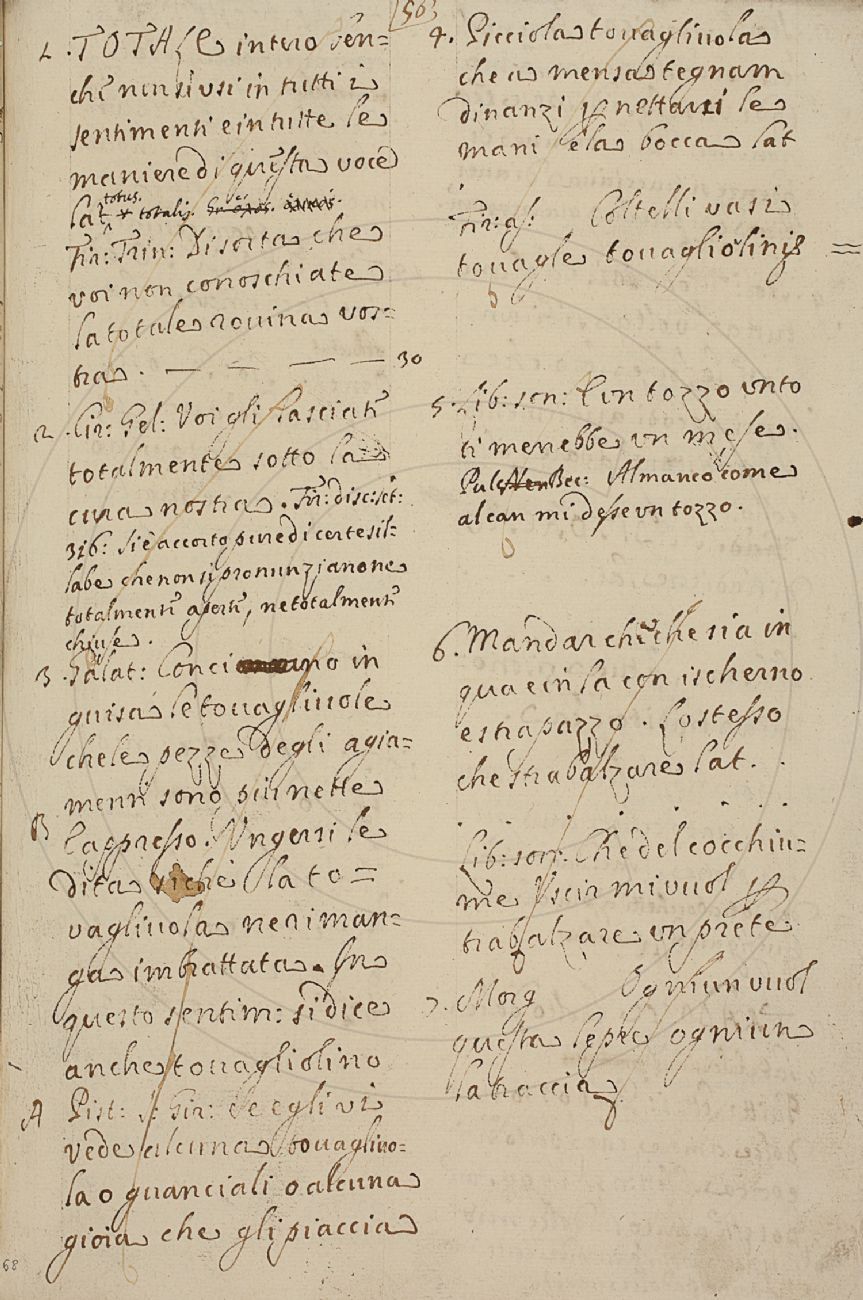 50
1. TOTALE intero ben=
chè non si usi in tutti i
sentimenti e in tutte le
maniere di questa voce
totus.
lat totalis.
Fir: Trin: Di sorta che
voi non conoschiate
la totale rovina vos=
tra. — — — — 30
2. Cir: Gel: Voi gli lasciati
totalmente sotto la
cura nostra. Fir: disc: let:
316: Sie accorto pure di certe sil=
labe che non si pronunziano ne
totalmenti aperti, ne totalmenti
chiuse.
3. Galat: Conciano in
guisa le tovagliuole
che le pezze degli agia=
menti sono più nette
B E appresso. Ungersi le
dita sichè la to=
vagliuola ne riman=
ga imbrattata. In
questo sentim: si dice
anche tovagliolino
A Pist: S: Gir: Se egli vi
vede alcuna tovagliuo=
la o guanciali o alcuna
gioia che gli piaccia
4. Picciola tovagliuola
che a mensa tegnam
dinanzi p nettarsi le
mani e la bocca lat
.
Fir: as: Coltelli vasi
tovagle tovagliolini =
5. Lib: son: E un tozzo unto
ti menebbe un mese.
Pulc Bec: Almanco come
al can mi desse un tozzo.
6. Mandar chi che sia in
qua e in la con ischerno
e strapazzo. Lo stesso
che strabalzare lat. .
. . . . . .
Lib: son: Che del cocchiu=
me Uscir mi vuol p
trabalzare un prete
7. Morg Ogniun vuol
questa lepre ogniun
la traccia
68